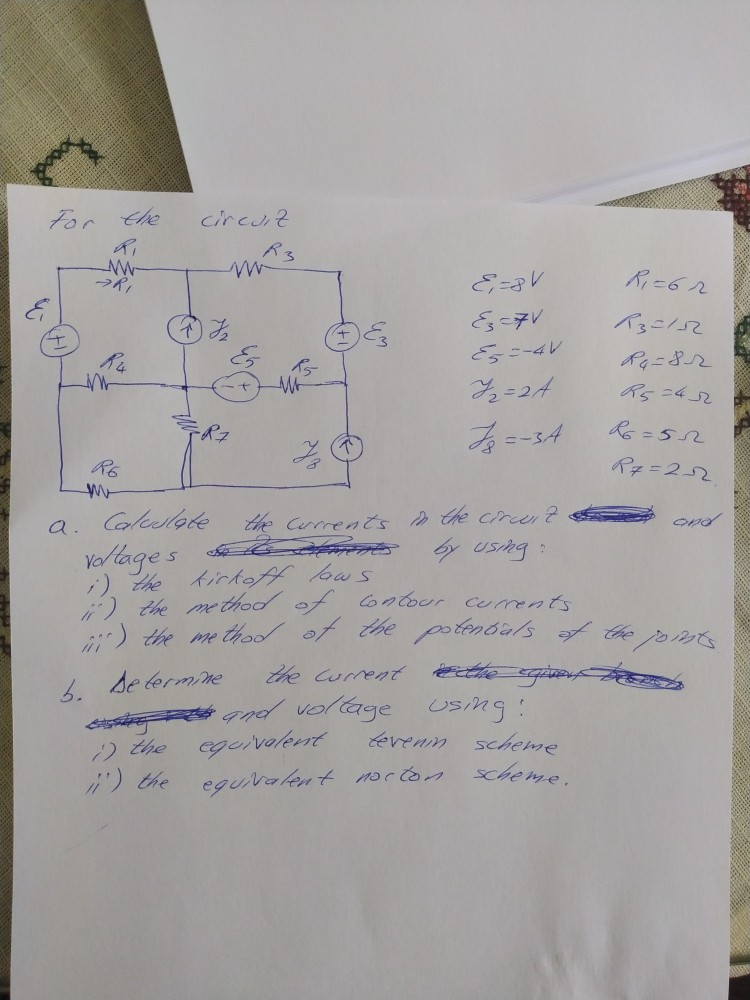 For the circuit
R1 R3
→R1
E1 J2 E3
E5
R4 R5
R7
J8
R6
E1=8V R1=6Ω
E3=7V R3=1Ω
E5=-4V R4=8Ω
J2=2A R5=4Ω
J8=-3A R6=5Ω
R7=2Ω
a. Calculate the currents in the circuit and
voltages by using:
i) the kirkoff laws
ii) the method of contour currents
iii) the method of the potentials of the joints
b. Determine the current
and voltage using:
i) the equivalent tevenin scheme
ii) the equivalent norton scheme.